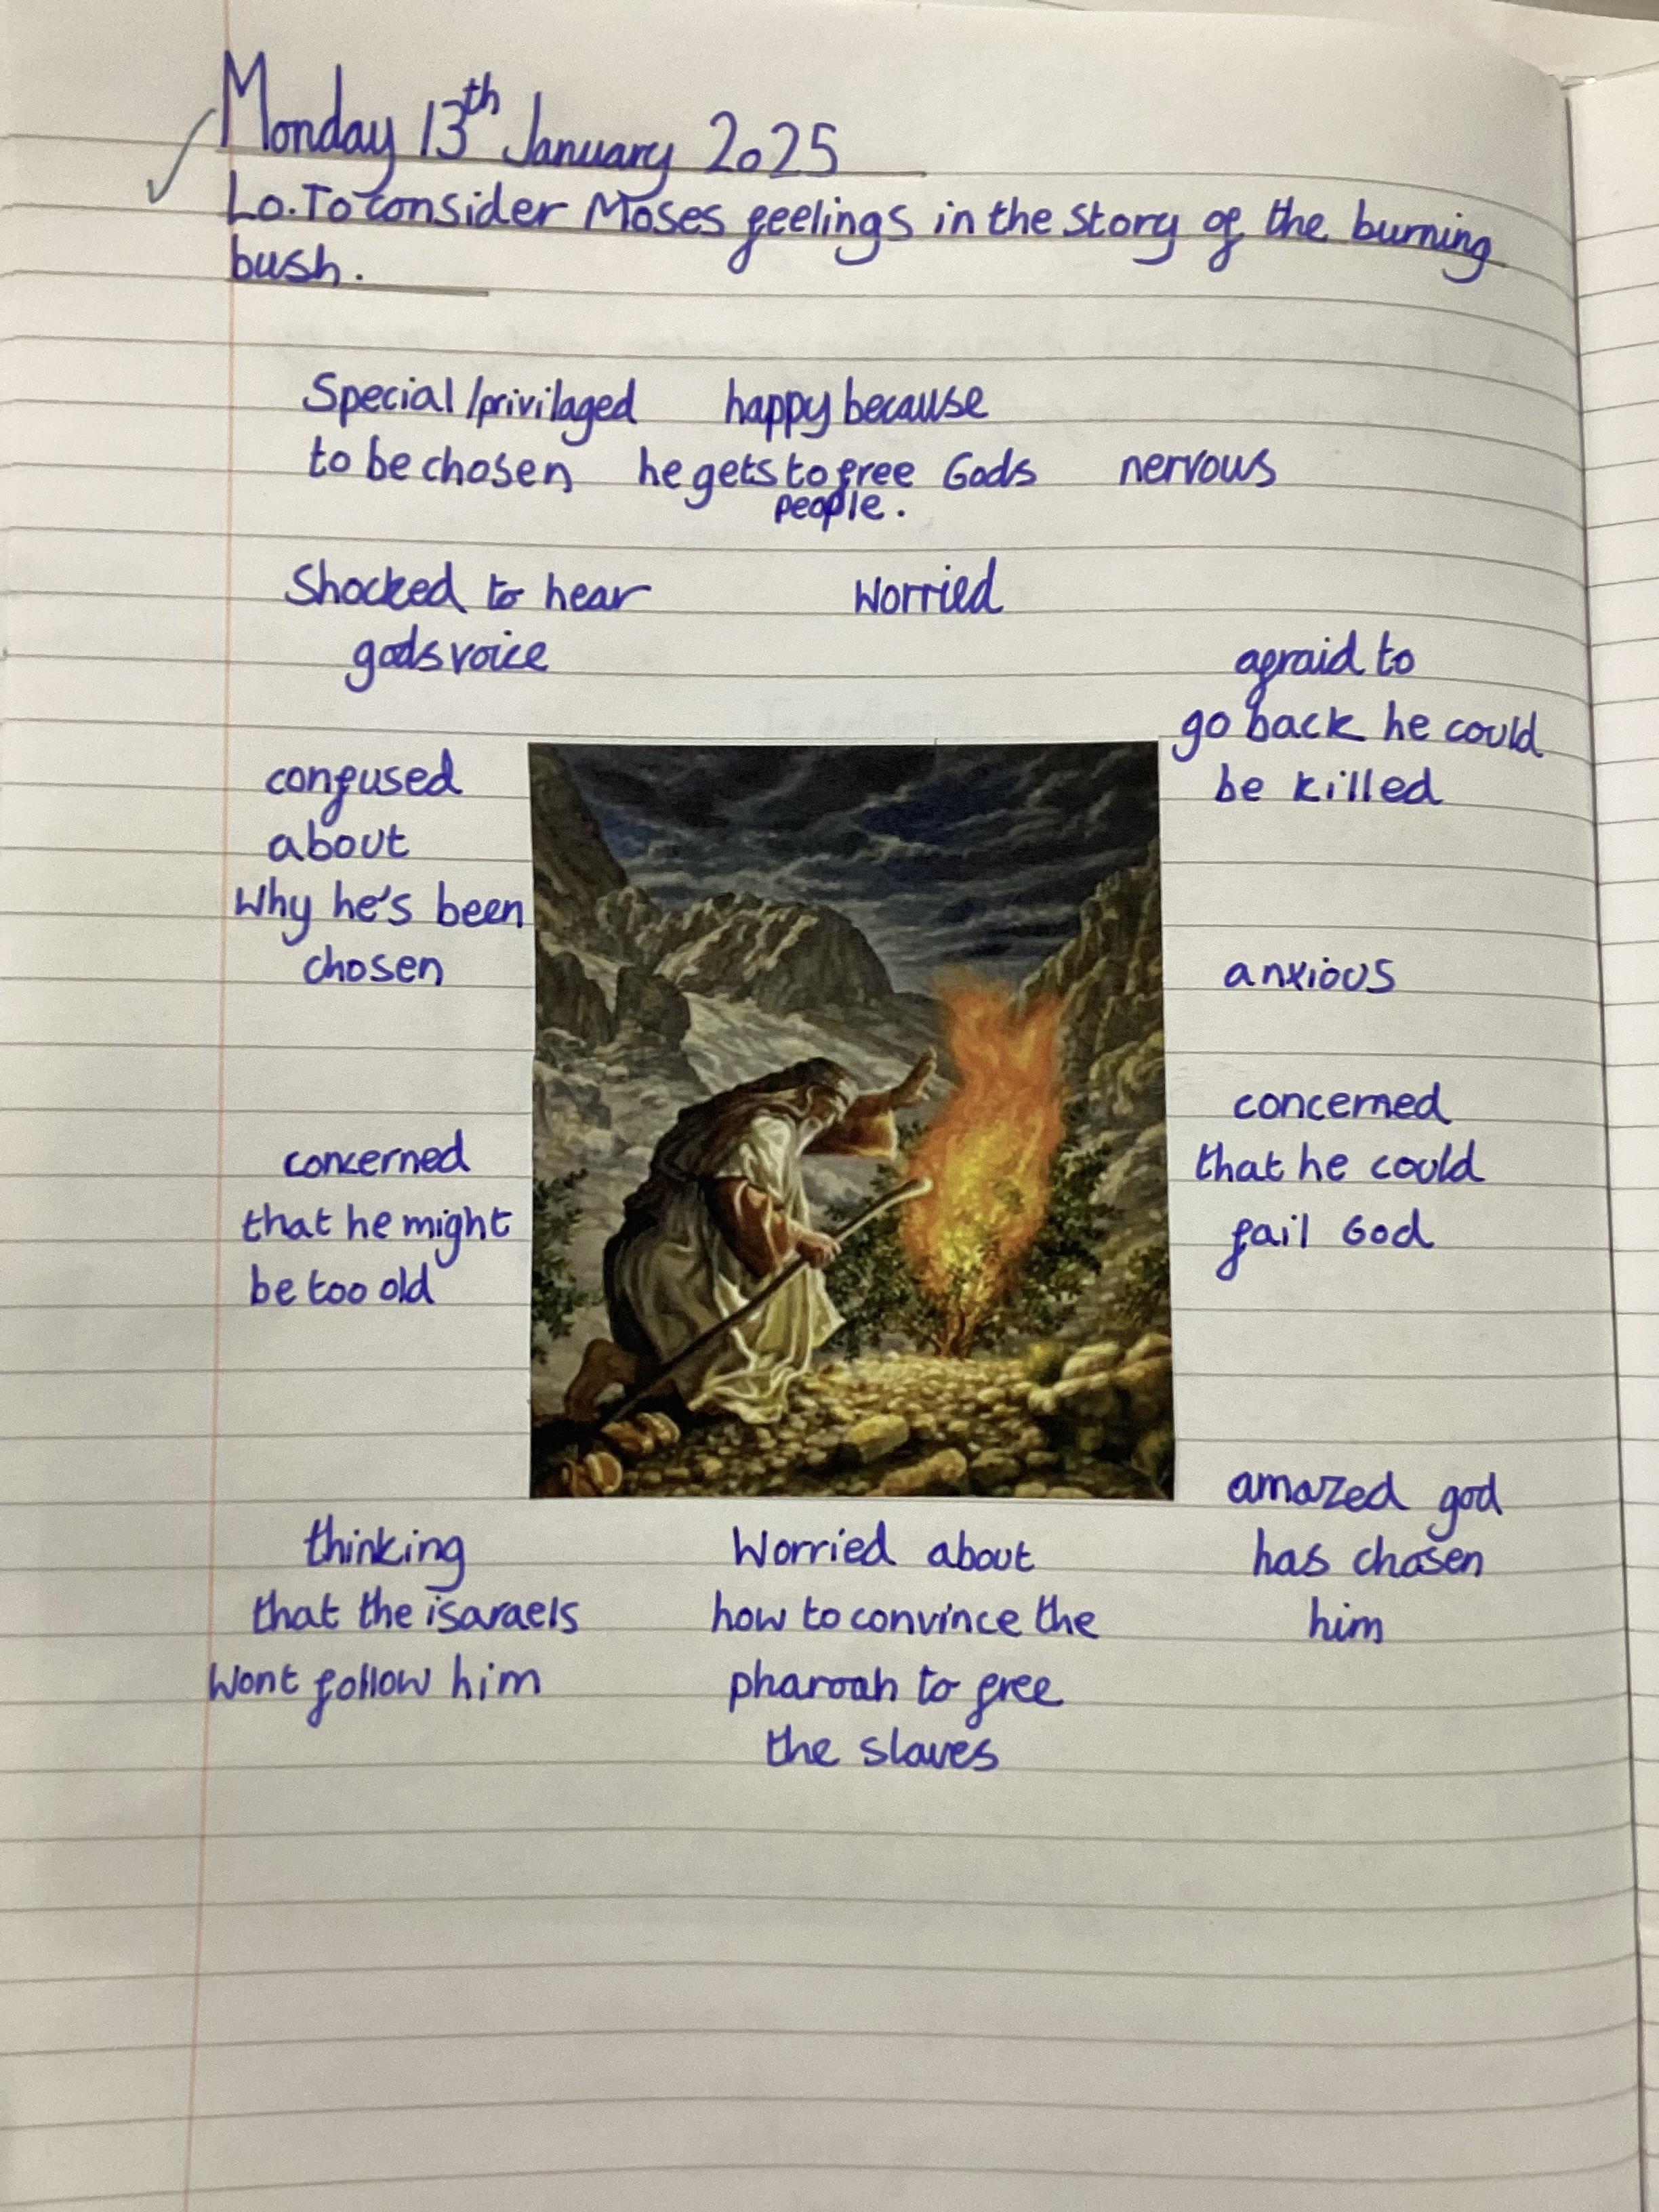 Monday 13th January 2025
Lo. To consider Moses feelings in the story of the burning
bush.
Special/privilaged
to be chosen
happy because
he gets to free Gods
people.
nervous
Shocked to hear
gods voice
Worried
afraid to
go back he could
be killed
confused
about
Why he's been
chosen
anxious
concerned
that he might
be too old
concerned
that he could
fail God
thinking
that the isaraels
Wont follow him
Worried about
how to convince the
pharoah to free
the slaves
amazed god
has chosen
him